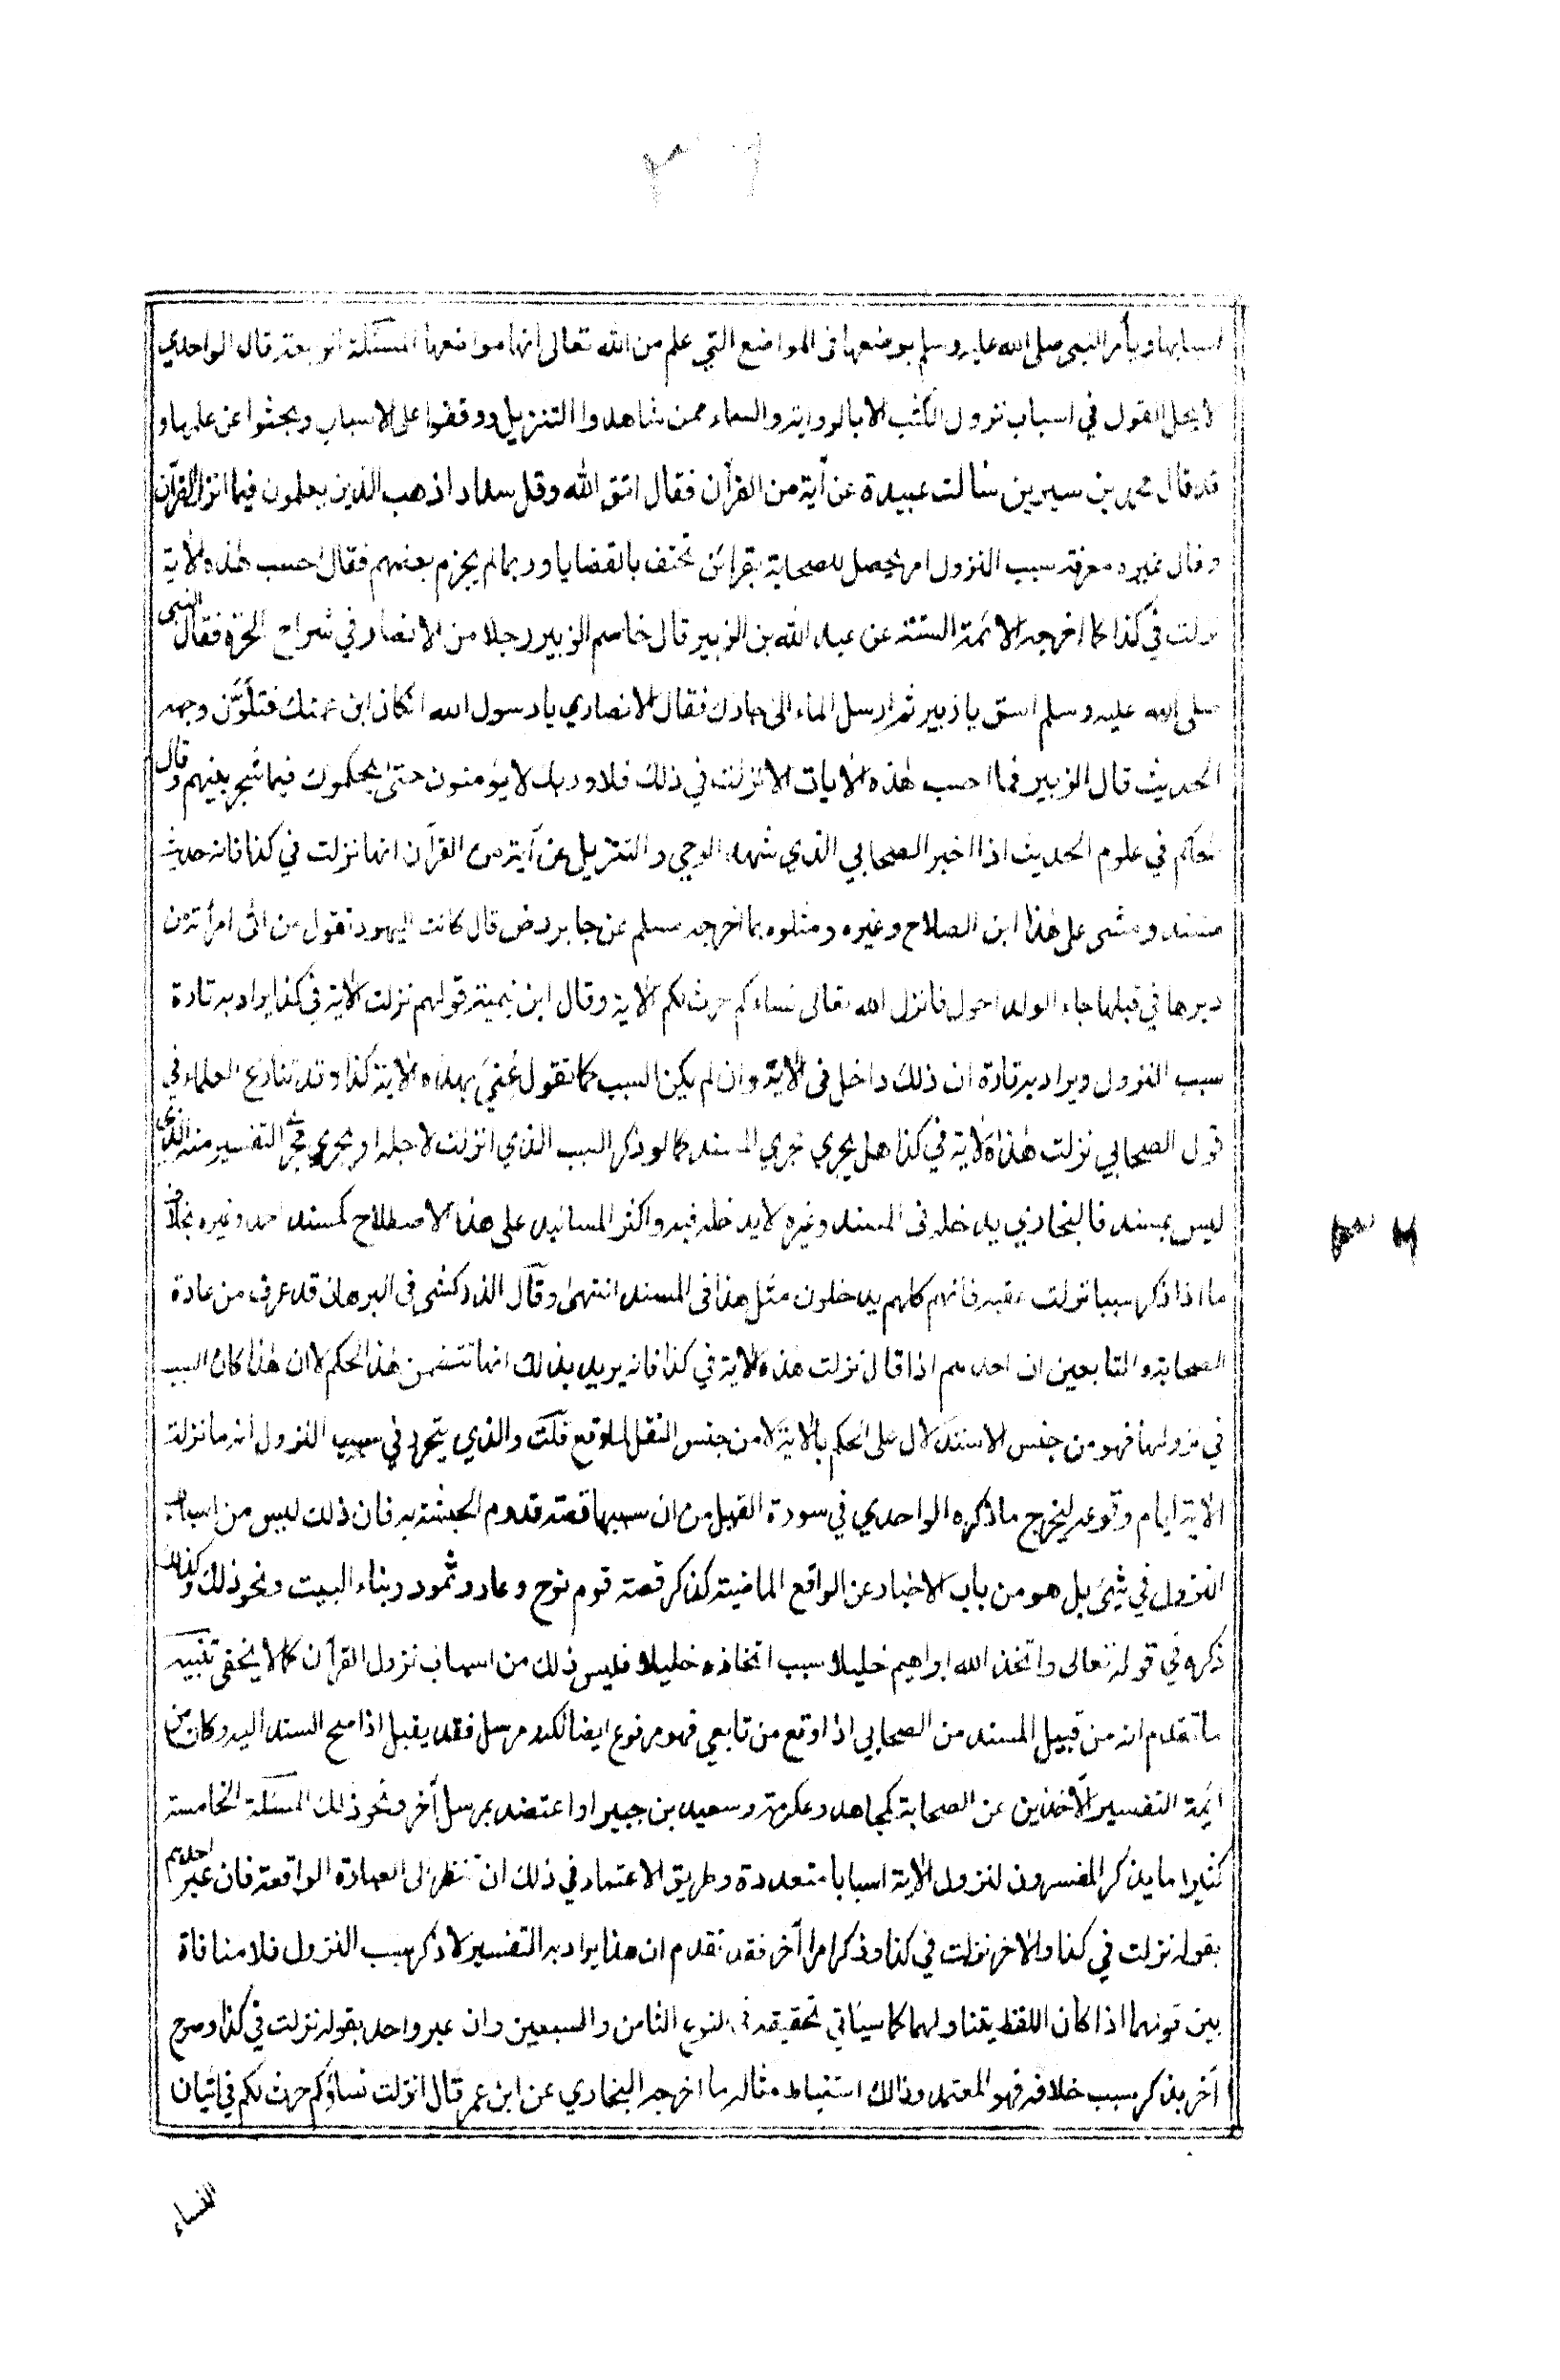 اسبابها ويأمر النبي صلى الله عليه وسلم بوضعها في المواضع التي علم من الله تعالى انها مواضعها المسئلة الرابعة قال الواحدي
لا يحل القول في اسباب نزول الكتب الا بالرواية والسماع ممن شاهدوا التنزيل ووقفوا على الاسباب وبحثوا عن علمها و
قد قال محمد بن سيرين سالت عبيدة عن آية من القرآن فقال اتق الله وقل سدادا ذهب الذين يعلمون فيما انزل القرآن
وقال غيره معرفة سبب النزول امر يحصل للصحابة بقرائن تحتف بالقضايا وربما لم يجزم بعضهم فقال احسب هذه الآية
نزلت في كذا كما اخرجه الائمة الستة عن عبد الله بن الزبير قال خاصم الزبير رجلا من الانصار في شراح الحرة فقال النبي
صلى الله عليه وسلم اسق يا زبير ثم ارسل الماء الى جارك فقال الانصاري يا رسول الله ان كان ابن عمتك فتلون وجهه
الحديث قال الزبير فما احسب هذه الآيات الا نزلت في ذلك فلا وربك لا يؤمنون حتى يحكموك فيما شجر بينهم وقال
الحاكم في علوم الحديث اذا اخبر الصحابي الذي شهد الوحي والتنزيل عن آية من القرآن انها نزلت في كذا فانه حديث
مسند ومشى على هذا ابن الصلاح وغيره ومثلوه بما اخرجه مسلم عن جابر رض قال كانت اليهود تقول من اتى امرأته من
دبرها في قبلها جاء الولد احول فانزل الله تعالى نساءكم حرث لكم الآية وقال ابن تيمية قولهم نزلت الآية في كذا يراد به تارة
سبب النزول ويراد به تارة ان ذلك داخل في الآية وان لم يكن السبب كما تقول عُنِيَ بهذه الآية كذا وقد تنازع العلماء في
قول الصحابي نزلت هذه الآية في كذا هل يجري مجري المسند كما لو ذكر السبب الذي انزلت لاجله او يجري مجرى التفسير منه الذي
ليس بمسند فالبخاري يدخله في المسند وغيره لا يدخله فيه واكثر المسانيد على هذا الاصطلاح كمسند احمد وغيره بخلاف
ما اذا ذكر سببا نزلت عقبه فانهم كلهم يدخلون مثل هذا في المسند انتهى وقال الزركشي في البرهان قد عرف من عادة
الصحابة والتابعين ان احدهم اذا قال نزلت هذه الآية في كذا فانه يريد بذلك انها تتضمن هذا الحكم لا ان هذا كان السبب
في نزولها فهو من جنس الاستدلال على الحكم بالآية لا من جنس النقل لما وقع قلت والذي يتحرر في سبب النزول انه ما نزلت
الآية ايام وقوعه ليخرج ما ذكره الواحدي في سورة الفيل من ان سببها قصة قدوم الحبشة به فان ذلك ليس من اسباب
النزول في شيئ بل هو من باب الاخبار عن الواقع الماضية كذكر قصة قوم نوح وعاد وثمود وبناء البيت ونحو ذلك وكذلك
ذكره في قوله تعالى واتخذ الله ابراهيم خليلا سبب اتخاذه خليلا فليس ذلك من اسباب نزول القرآن كما لا يخفى تنبيه
ما تقدم انه من قبيل المسند من الصحابي اذا وقع من تابعي فهو مرفوع ايضا لكنه مرسل فقد يقبل اذا صح السند اليه وكان من
ايمة التفسير الآخذين عن الصحابة كمجاهد وعكرمة وسعيد بن جبير او اعتضد بمرسل آخر ونحو ذلك المسئلة الخامسة
كثيرا ما يذكر المفسرون لنزول الآية اسبابا متعددة وطريق الاعتماد في ذلك ان تنظر الى العبارة الواقعة فان عبر احدهم
بقوله نزلت في كذا والآخر نزلت في كذا وذكر امرا آخر فقد تقدم ان هذا يراد به التفسير لا ذكر سبب النزول فلا منافاة
بين قولهما اذا كان اللفظ يتناولهما كما سيأتي تحقيقه في النوع الثامن والسبعين وان عبر واحد بقوله نزلت في كذا وصرح
آخر بذكر سبب خلافه فهو المعتمد وذالك استنباط مثاله ما اخرجه البخاري عن ابن عمر قال انزلت نساؤكم حرث لكم في اتيان
النساء